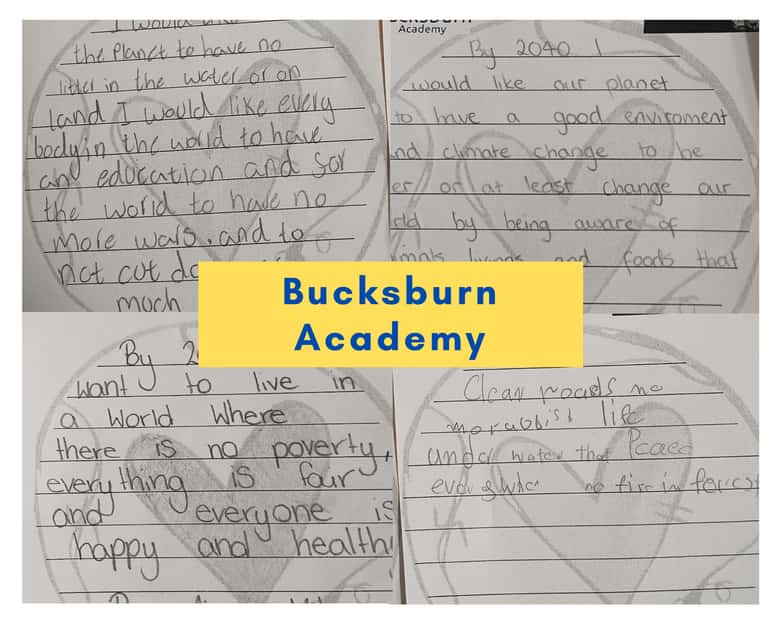 I would like
the Planet to have no
litter in the water or on
land I would like every
body in the world to have
an education and for
the world to have no
more wars. and to
not cut do
much
BUCKSBURN
Academy
By 2040 I
would like our planet
to have a good enviroment
nd climate change to be
er or at least change our
rld by being aware of
foods that
Bucksburn
Academy
By 2
want to live in
a World Where
there is no poverty,
everything is fair
and everyone is
happy and health
Clean roads no
life
under water that Peace
no fire in forest